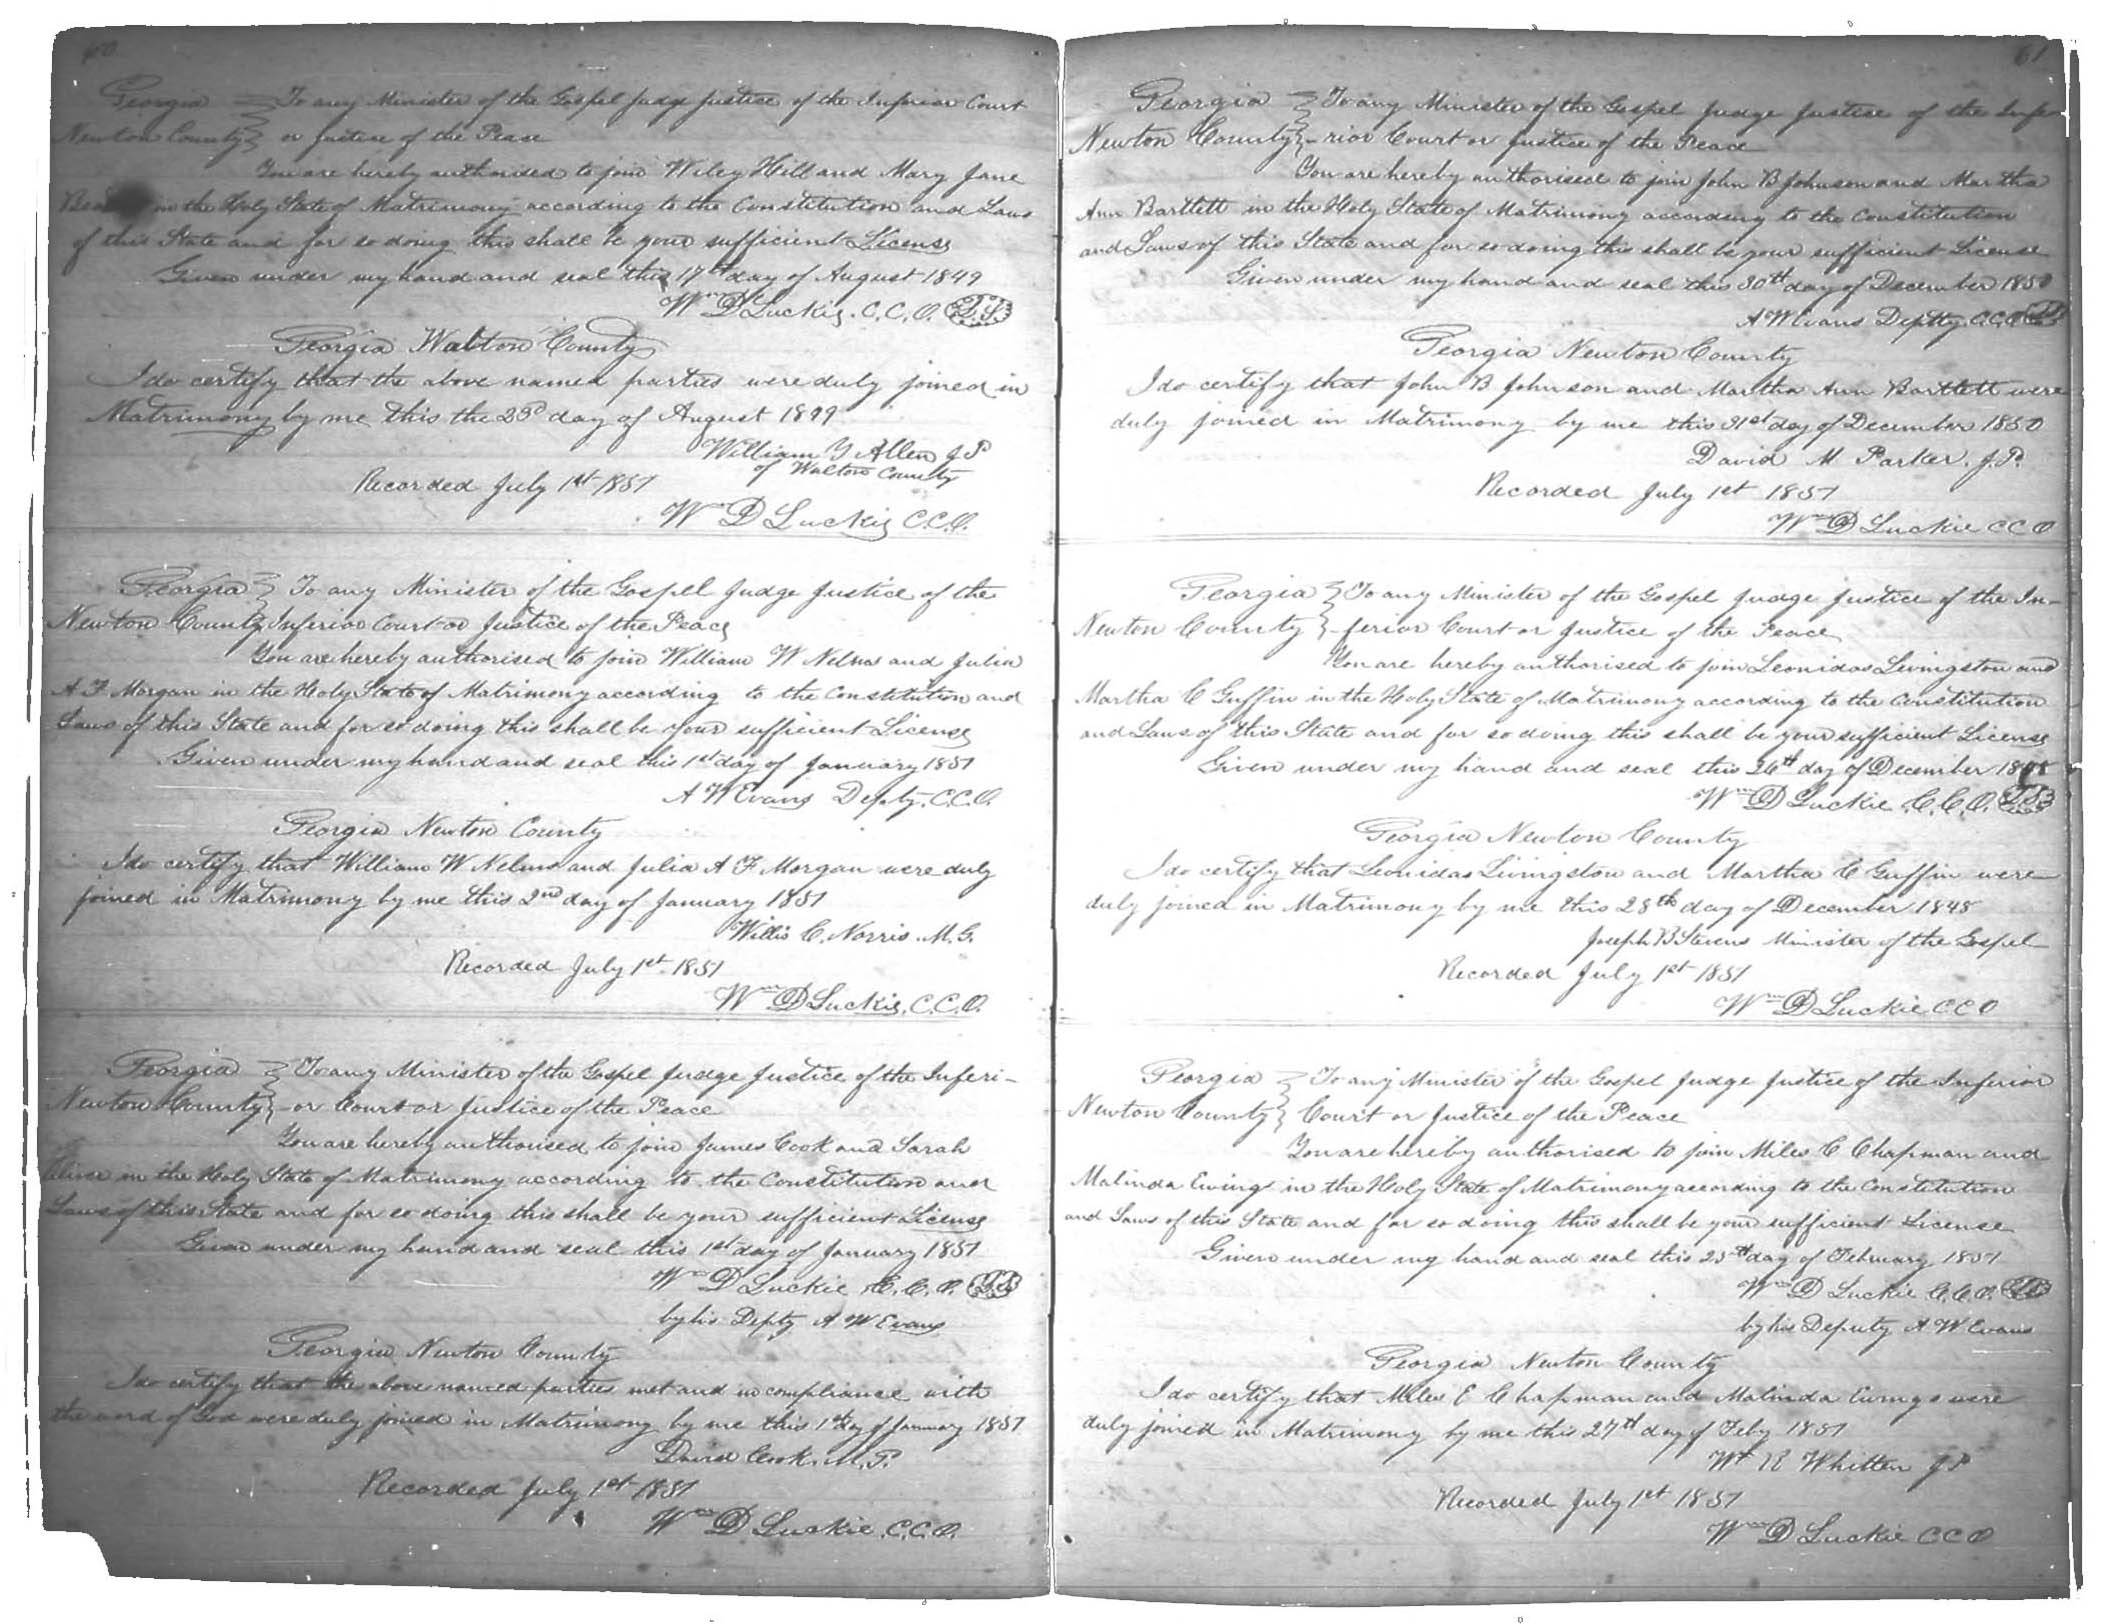 60
Georgia } To any Minister of the Gospel Judge Justice of the Inferior Court
Newton County } or Justice of the Peace
You are hereby authorised to join Wiley Hill and Mary Jane
in the Holy State of Matrimony according to the Constitution and Laws
of this State and for so doing this shall be your sufficient License
Given under my hand and seal this 17th day of August 1849
Wm D Luckie. C.C.O. L.S.
Georgia Walton County
I do certify that the above named parties were duly joined in
Matrimony by me this the 23d day of August 1849
William J Allen J P
of Walton County
Recorded July 1st 1851
Wm D Luckie C.C.O.
Georgia } To any Minister of the Gospel Judge Justice of the
Newton County } Inferior Court or Justice of the Peace
You are hereby authorised to join William W Nelms and Julia
A F Morgan in the Holy State of Matrimony according to the Constitution and
Laws of this State and for so doing this shall be your sufficient License
Given under my hand and seal this 1st day of January 1851
A W Evans Depty. C.C.O.
Georgia Newton County
I do certify that William W Nelms and Julia A F Morgan were duly
joined in Matrimony by me this 2nd day of January 1851
Willis C. Norris. M.G.
Recorded July 1st 1851
Wm D Luckie. C.C.O.
Georgia } To any Minister of the Gospel Judge Justice of the Inferi-
Newton County } -or Court or Justice of the Peace
You are hereby authorised to join James Cook and Sarah
in the Holy State of Matrimony according to the Constitution and
Laws of this State and for so doing this shall be your sufficient License
Given under my hand and seal this 1st day of January 1851
Wm D Luckie C.C.O. L.S.
by his Depty A W Evans
Georgia Newton County
I do certify that the above named parties met and in compliance with
the word of God were duly joined in Matrimony by me this 1st day of January 1851
David Cook. M.G.
Recorded July 1st 1851
Wm D Luckie. C.C.O.
61
Georgia } To any Minister of the Gospel Judge Justice of the Infe-
Newton County } -rior Court or Justice of the Peace
You are hereby authorised to join John B Johnson and Martha
Ann Bartlett in the Holy State of Matrimony according to the Constitution
and Laws of this State and for so doing this shall be your sufficient License
Given under my hand and seal this 30th day of December 1850
A W Evans Deptty. C.C.O. L.S.
Georgia Newton County
I do certify that John B Johnson and Martha Ann Bartlett were
duly joined in Matrimony by me this 31st day of December 1850
David M Parker. J.P.
Recorded July 1st 1851
Wm D Luckie C C O
Georgia } To any Minister of the Gospel Judge Justice of the In-
Newton County } -ferior Court or Justice of the Peace
You are hereby authorised to join Leonidas Livingston and
Martha C Guffin in the Holy State of Matrimony according to the Constitution
and Laws of this State and for so doing this shall be your sufficient License
Given under my hand and seal this 26th day of December 1848
Wm D Luckie C.C.O. L.S.
Georgia Newton County
I do certify that Leonidas Livingston and Martha C Guffin were
duly joined in Matrimony by me this 28th day of December 1848
Joseph B Stevens Minister of the Gospel
Recorded July 1st 1851
Wm D Luckie C C O
Georgia } To any Minister of the Gospel Judge Justice of the Inferior
Newton County } Court or Justice of the Peace
You are hereby authorised to join Miles C Chapman and
Malinda Ewings in the Holy State of Matrimony according to the Constitution
and Laws of this State and for so doing this shall be your sufficient License
Given under my hand and seal this 25th day of February 1851
Wm D Luckie C.C.O. L.S.
by his Deputy A W Evans
Georgia Newton County
I do certify that Miles E Chapman and Malinda Ewings were
duly joined in Matrimony by me this 27th day of Feby 1851
Wt R Whitten J P
Recorded July 1st 1851
Wm D Luckie C C O